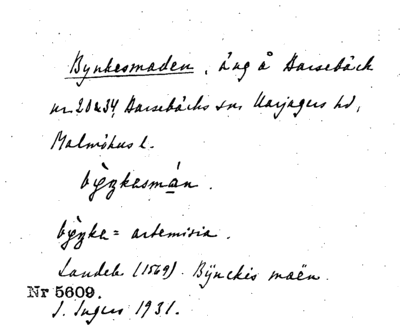 Bynkesmaden, äng å Barsebäck
nr 20 & 34, Barsebäcks sn, Harjagers hd,
Malmöhus l.
bỳŋkasmán.
bỳŋka = artemisia.
Landeb. (1569) Bÿnckis maën
Nr 5609.
J. Ingers 1931.